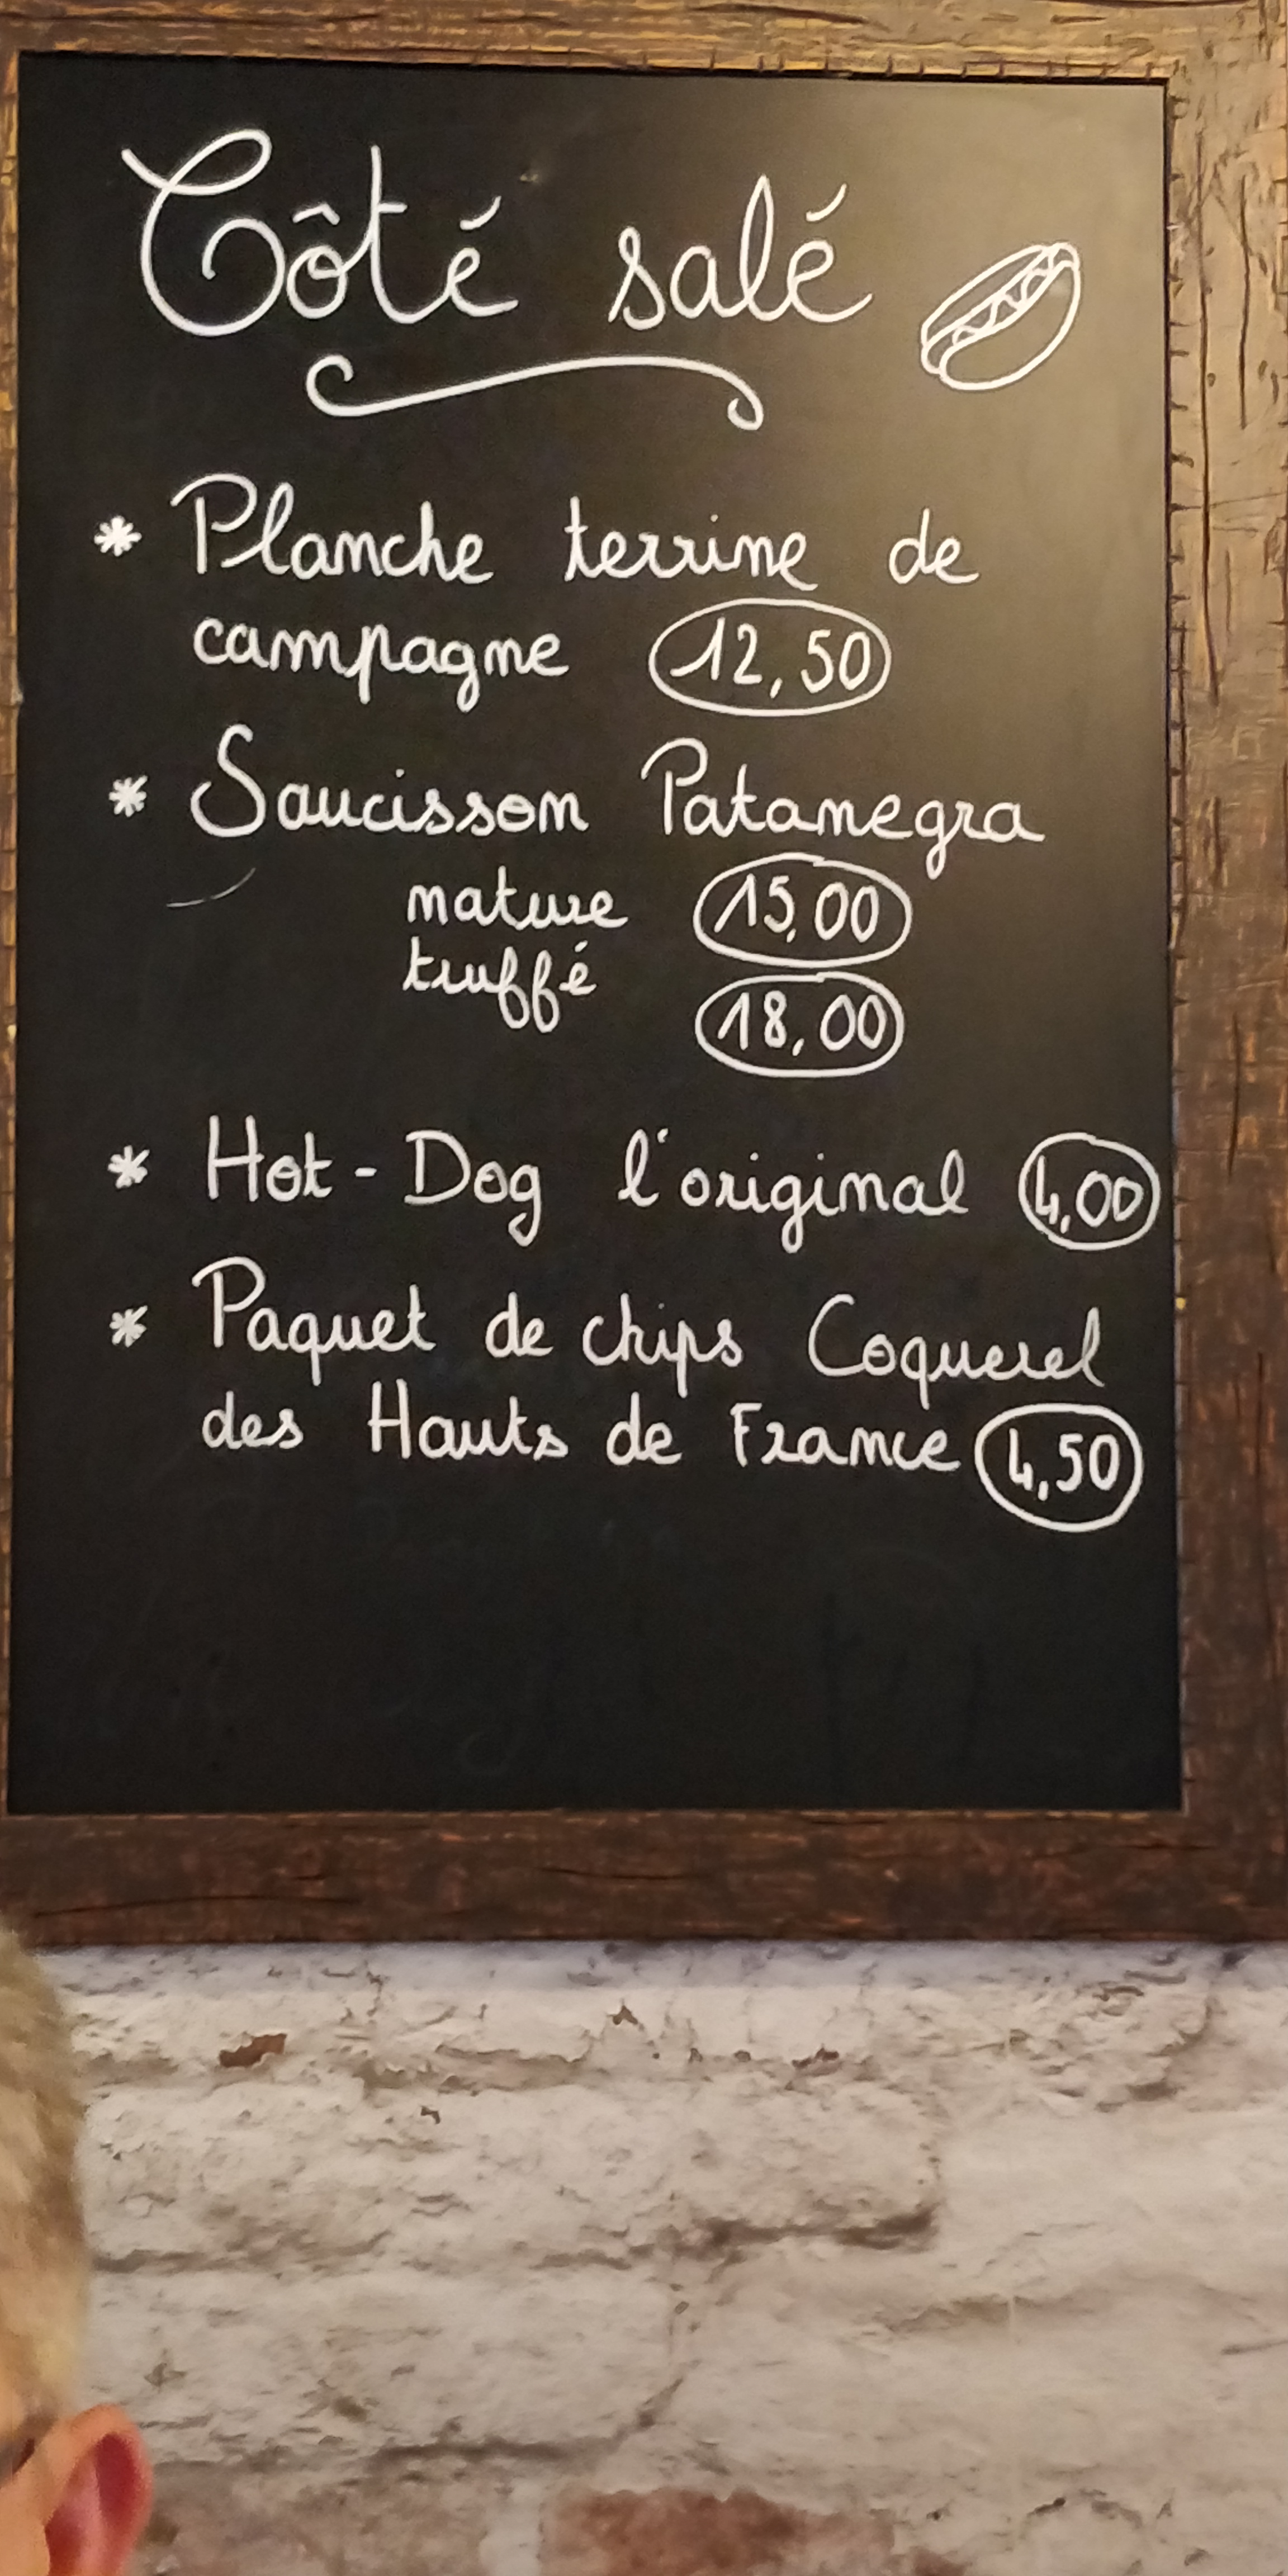 Côté salé
* Planche terrine de
campagne 12,50
* Saucisson Patanegra
mature 15,00
truffé 18,00
* Hot-Dog l'original 4,00
* Paquet de chips Coquerel
des Hauts de France 4,50